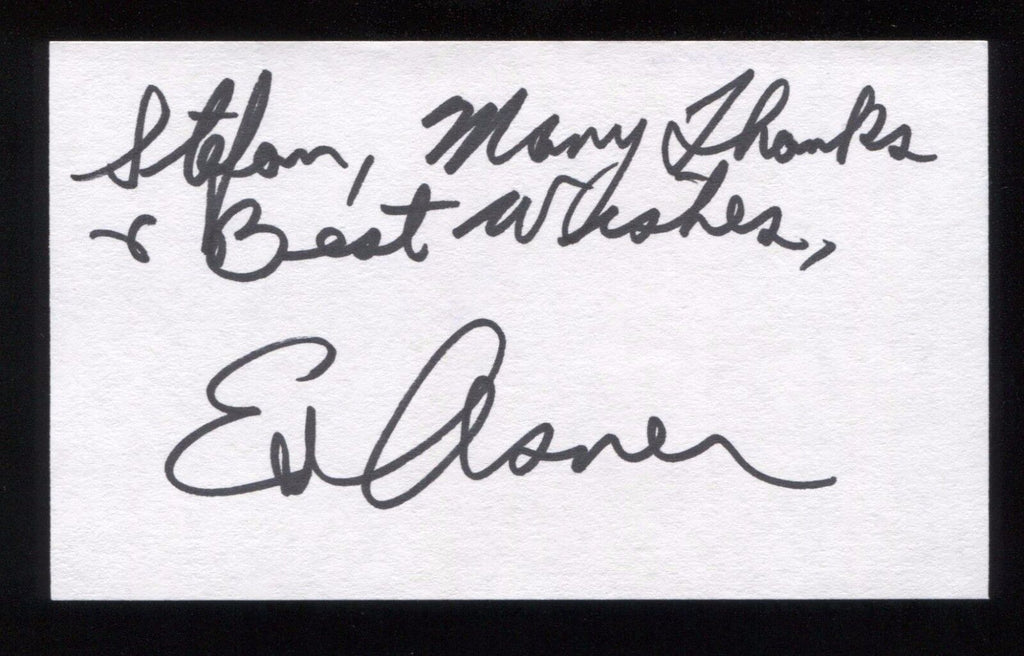 Stefan, Many Thanks
& Best Wishes,
Ed Asner